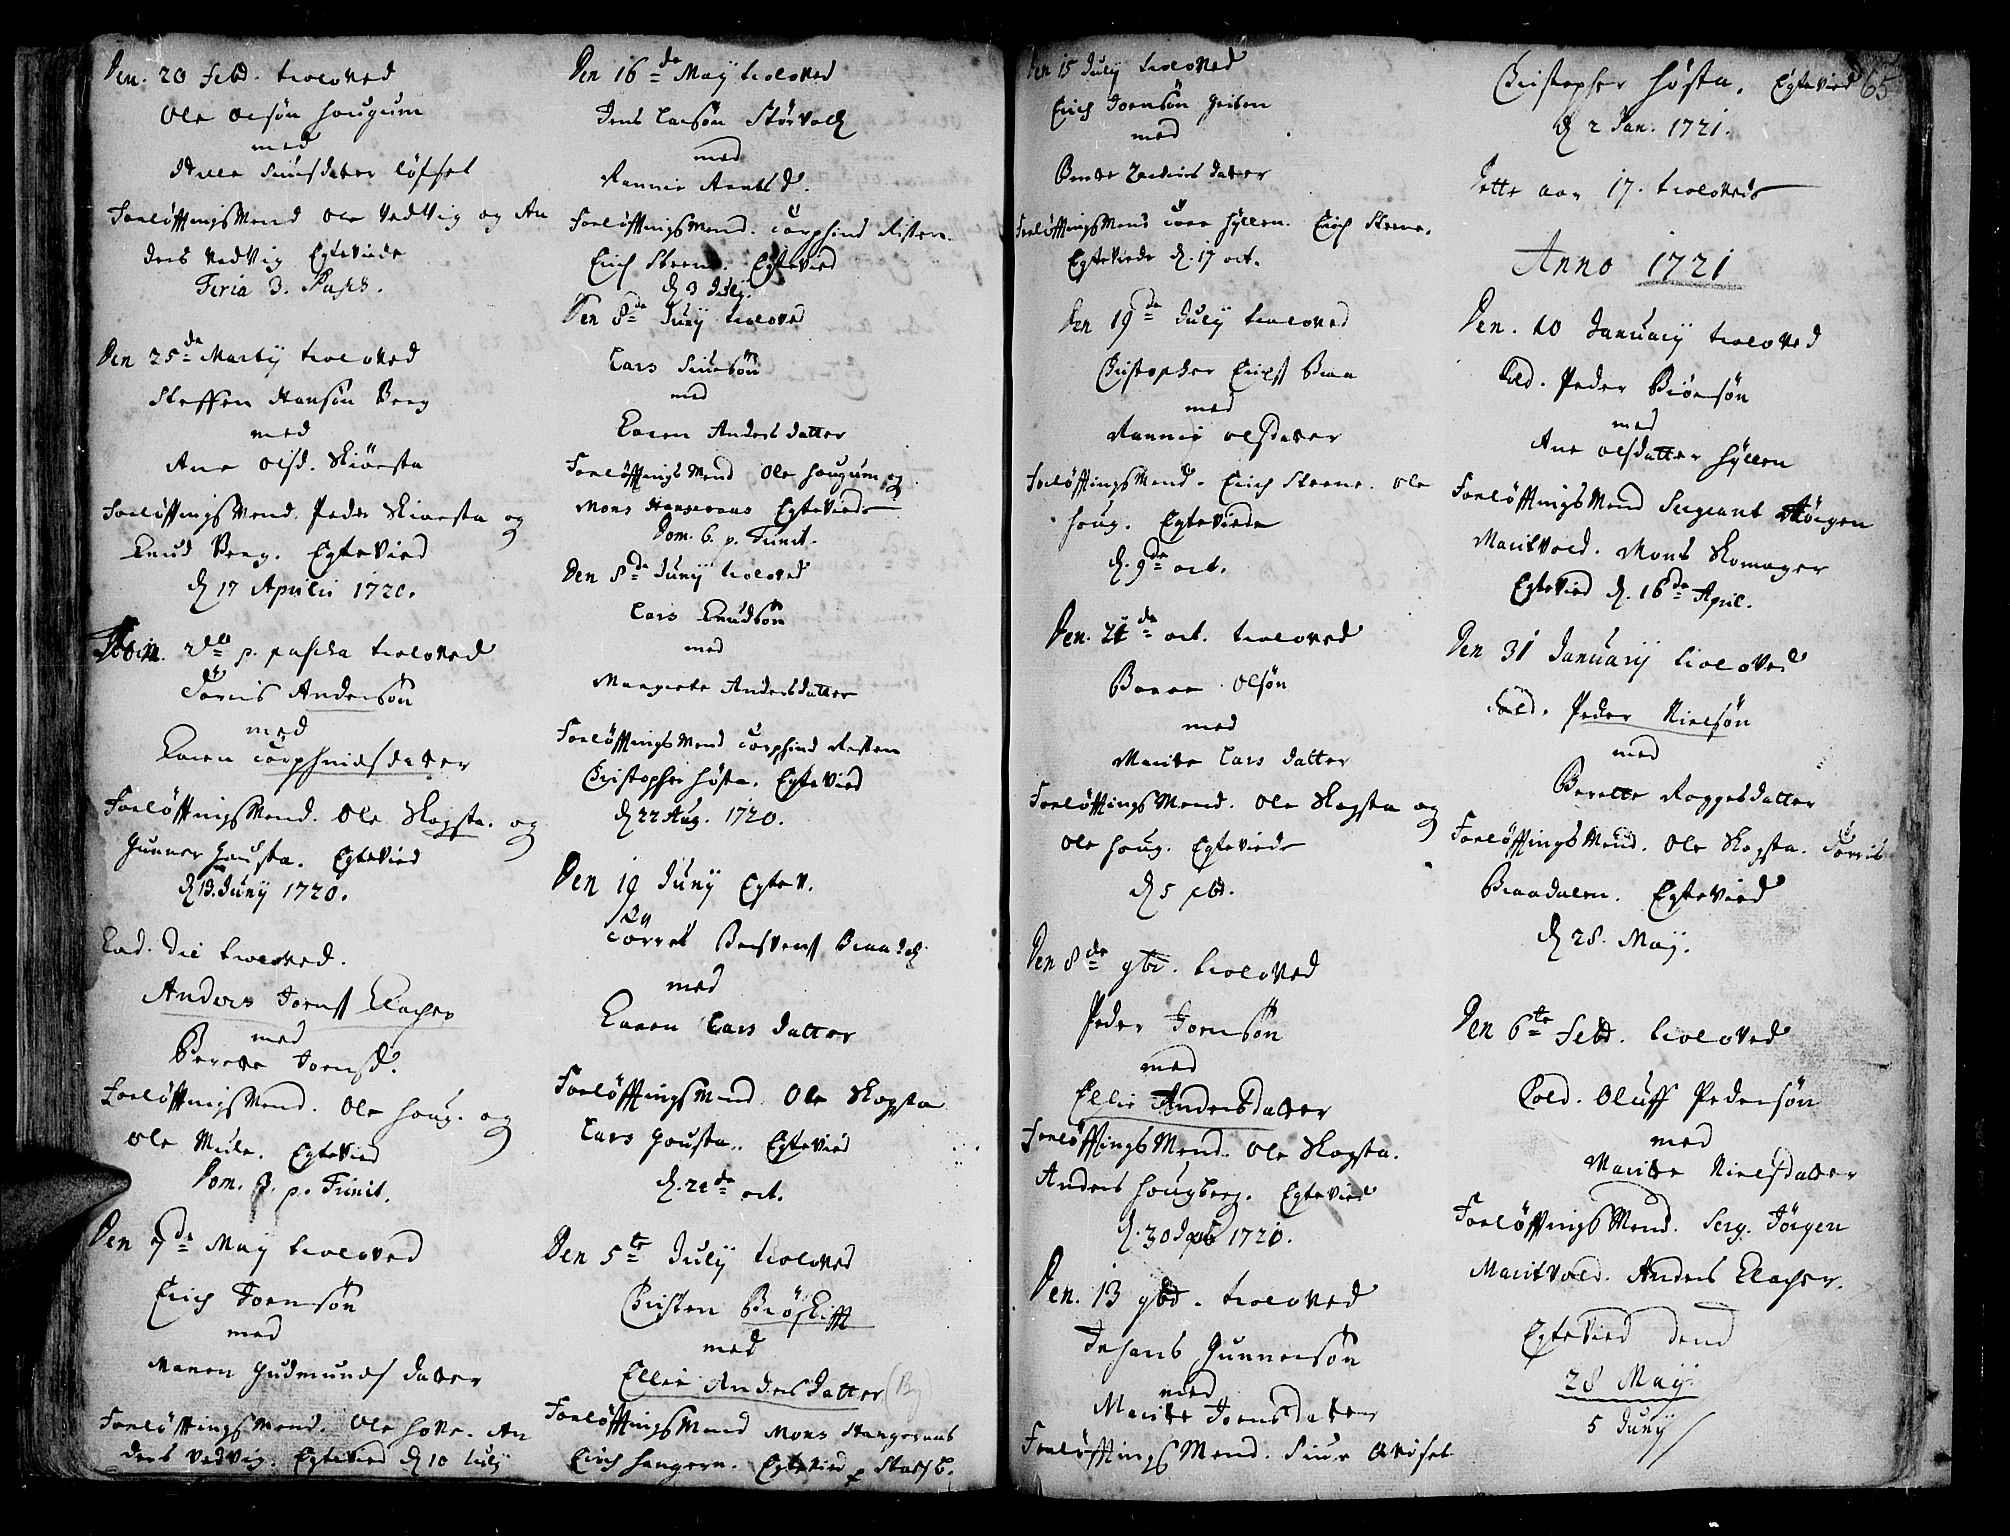 Den. 20 Febr. troloved
Ole Olsøn Hougum
med
Siursdatter Løfset
Forløftnings Mend Ole Vedvig og An
ders Vedvig Egteviede
Feria 3. Pasch.
Den 25de Martij troloved
Steffen Hansøn Berg
med
Ane Olsd. Skiørsta
Forløftnings Mend. Peder Skiørsta og
Knud Berg. Egtevied
d. 17 Aprilis 1720.
2den p. pascha troloved
Torris Andersøn
med
Karen Torphindsdatter
Forløftnings Mend. Ole Skogsta. og
Gunner Housta. Egtevied
d. 19. Junij 1720.
Eod. die troloved.
Anders Joens. Klacher
med
Berette Joensd.
Forløftnings Mend. Ole Houg. og
Ole Mule. Egtevied
Dom. 3. p. Trinit.
Den 7de May troloved
Erich Joensøn
med
Maren Gudmundsdatter
Forløftnings Mend. Ole Hove. An
ders Vedvig. Egtevied d. 10 July
Den 16de May troloved
Jens Larsøn Størvold
med
Rannie Arntsd.
Forløftnings Mend. Torphind Risten.
Erich Steene. Egtevied
d. 3 July.
Den 8de Junij troloved
Lars Siursøn
med
Karen Andersdatter
Forløftnings Mend Ole Hougum og
Mons Hangeraas Egteviede
Dom. 6. p. Trinit.
Den 8de Junij troloved
Lars Knudsøn
med
Margrete Andersdatter
Forløftnings Mend Torphind Risten
Christopher Høsta. Egtevied
d. 22 Aug. 1720.
Den 19 Junij Egtev.
Torrel Braadal
med
Karen Lars datter
Forløftnings Mend. Ole Skogsta
Lars Housta. Egtevied
oct.
Den 5te Julij troloved
Christen
med
Ellie Andersdatter
Forløftnings Mend Mons Hangeraas
Erich Hangeraa. Egtevied
Den 15 Julij troloved
Erich Joensøn
med
Berette datter
Forløftnings Mend Tore Hyllen. Erich Steene.
Egteviede d. 17 oct.
Den 19de Julij troloved
Christopher Erichs. Braa
med
Rannie Olsdatter
Forløftnings Mend. Erich Steene. Ole
Houg. Egteviede
d. 9de oct.
Den. 24de oct. troloved
Baare Olsøn
med
Marite Lars datter
Forløftnings Mend. Ole Skogsta og
Ole Houg. Egteviede
d. 5 xbr.
Den 8de 9br. troloved
Peder Joensøn
med
Ellie Andersdatter
Forløftnings Mend. Ole Skogsta.
Anders Hougberg. Egtevied
d. 30 1720.
Den. 13 9br. troloved
Johans Gunnersøn
med
Marite Joensdatter
Forløftnings Mend. Siur
65
Christopher Høsta. Egtevied
d. 2 Jan. 1721.
Dette aar 17. troloved
Anno 1721
Den. 10 Januarij troloved
Sold. Peder Biørnsøn
med
Ane Olsdatter Hyllen
Forløftnings Mend Sergeant Jørgen
Maritvold. Mons Skomager
Egtevied d. 16de April.
Den 31 Januarij troloved
Sold. Peder Nielsøn
med
Berette Roggesdatter
Forløftnings Mend. Ole Skogsta. Torris
Braadalen. Egtevied
d. 28. May.
Den 6te Febr. troloved
Sold. Oluff Pedersøn
med
Marite Nielsdatter
Forløftnings Mend. Serg. Jørgen
Maritvold. Anders Klacher.
Egtevied dend
28 May
5 Junij